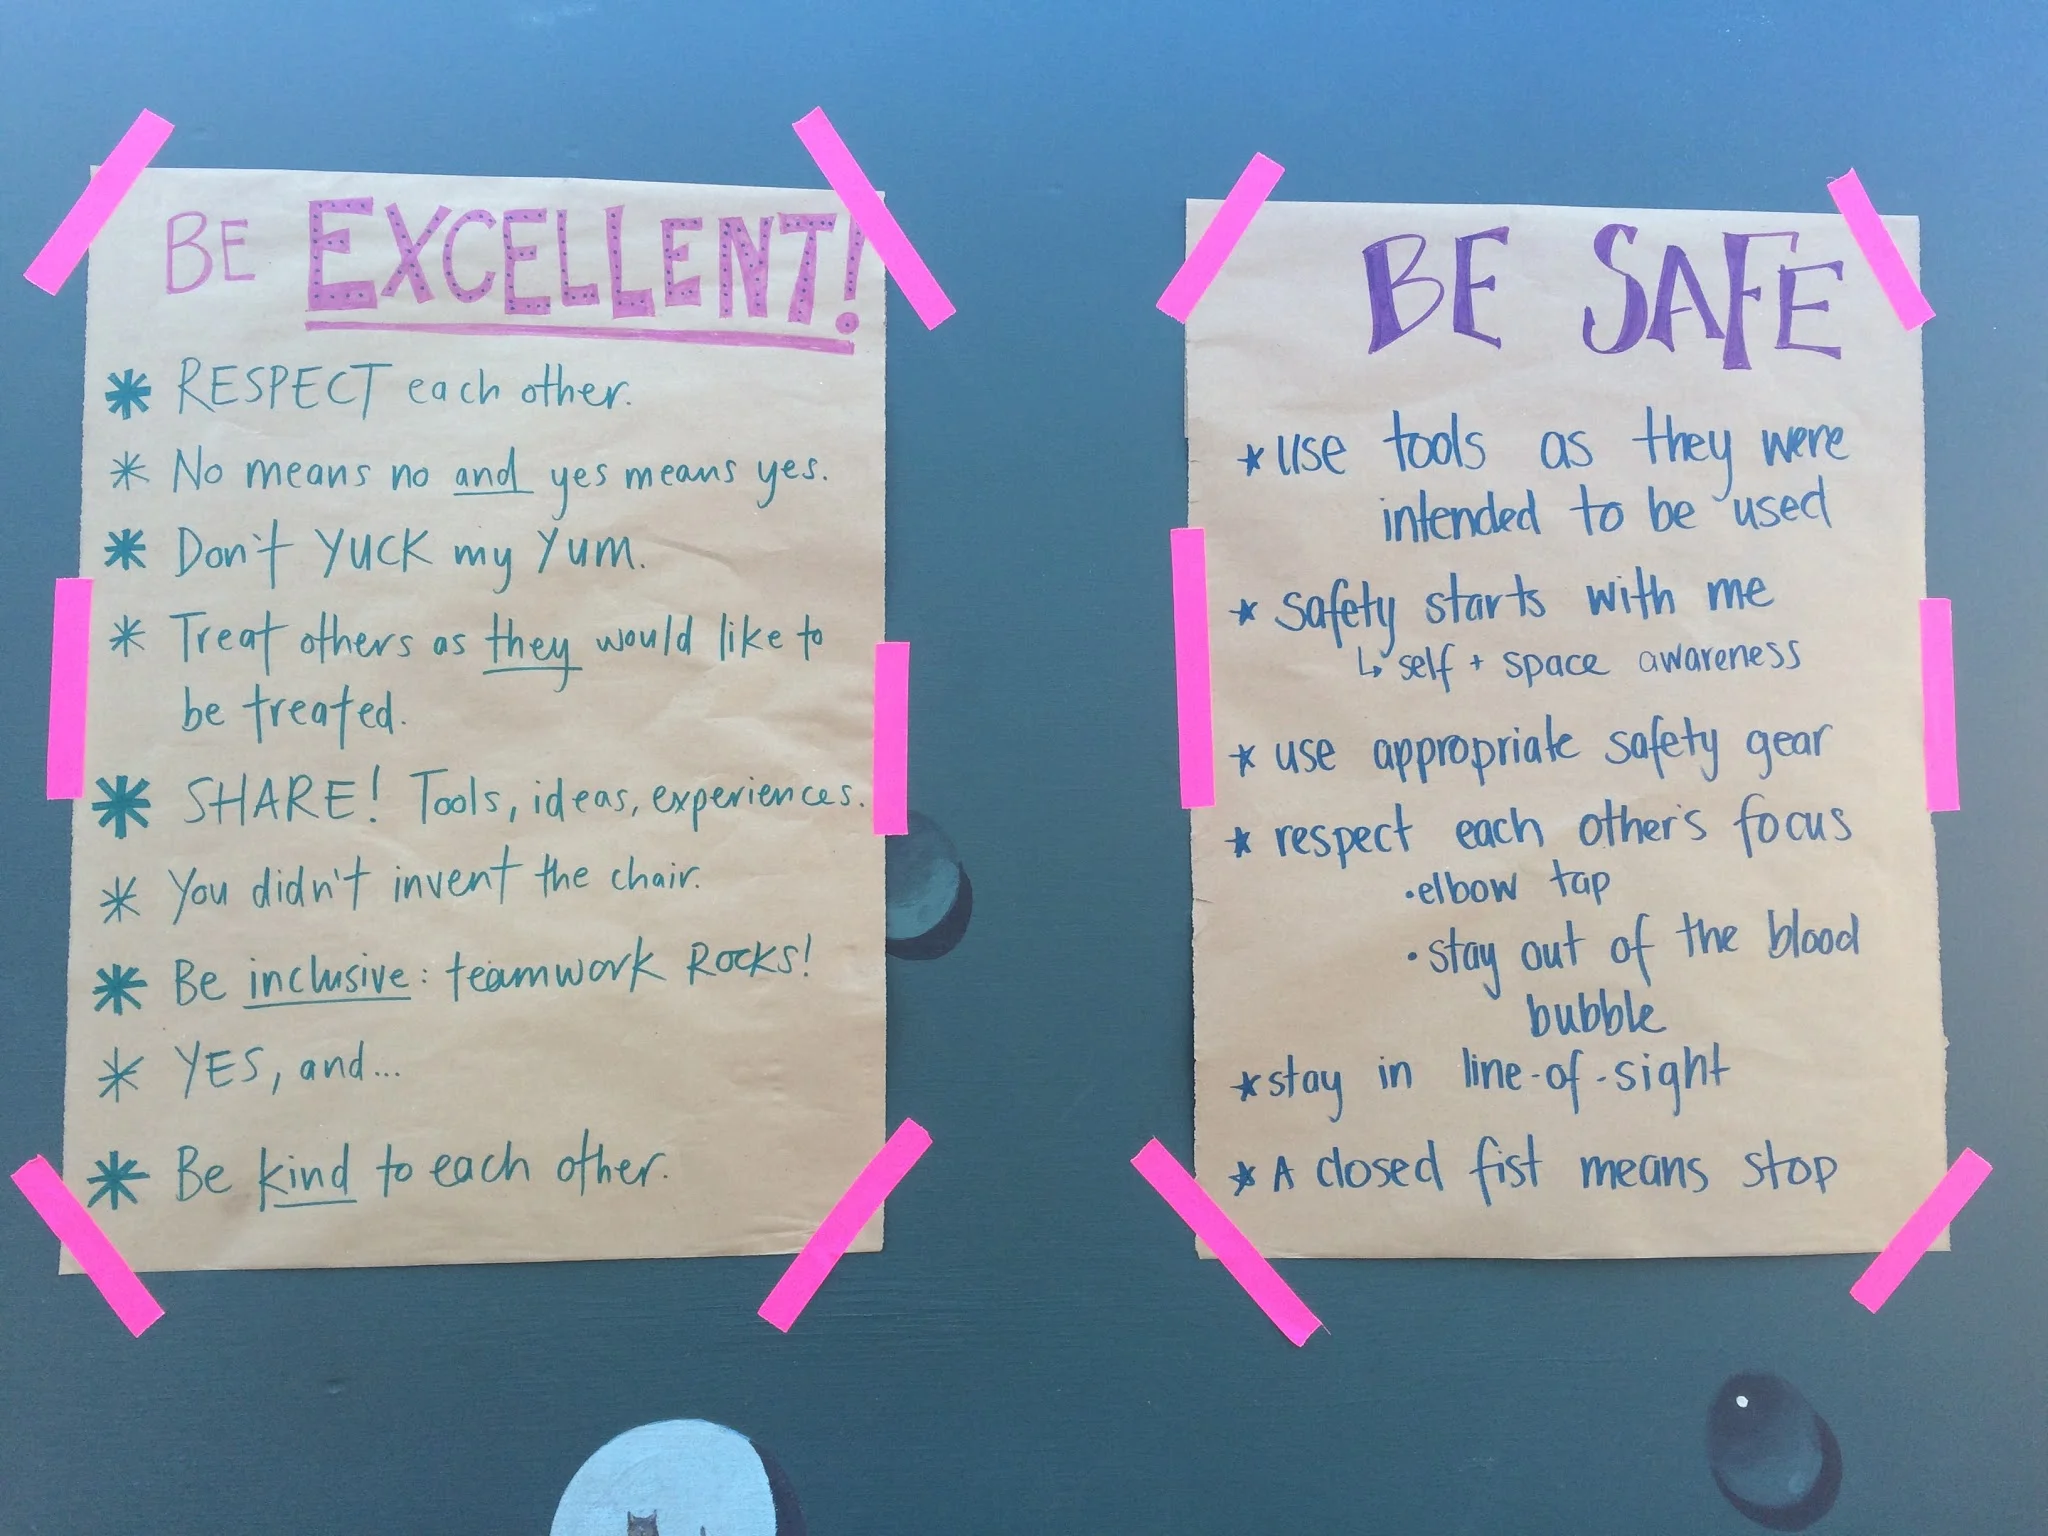 BE EXCELLENT!
* RESPECT each other.
* No means no and yes means yes.
* Don't YUCK my YUM.
* Treat others as they would like to
be treated.
* SHARE! Tools, ideas, experiences.
* You didn't invent the chair.
* Be inclusive: teamwork ROCKS!
* YES, and...
* Be kind to each other.
BE SAFE
* use tools as they were
intended to be used
* safety starts with me
↳ self + space awareness
* use appropriate safety gear
* respect each other's focus
• elbow tap
• stay out of the blood
bubble
* stay in line-of-sight
* A closed fist means stop